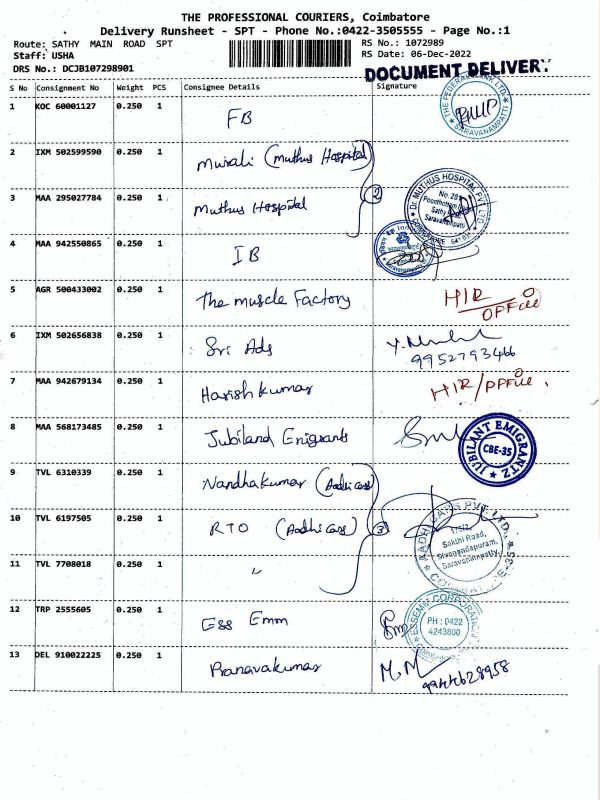 THE PROFESSIONAL COURIERS, Coimbatore
Delivery Runsheet - SPT - Phone No.:0422-3505555 - Page No.:1
Route: SATHY MAIN ROAD SPT
RS No.: 1072989
Staff: USHA
RS Date: 06-Dec-2022
DRS No.: DCJB107298901
DOCUMENT DELIVER
S No Consignment No Weight PCS Consignee Details Signature
1 KOC 60001127 0.250 1 FB
THE FEDERAL BANK LTD. SARAVANAMPATTI
2 IXM 502599590 0.250 1 Murali (Muthus Hospital)
3 MAA 295027784 0.250 1 Muthus Hospital
2
Dr. MUTHUS HOSPITAL PVT LTD
No.28
Sathy
Saravanampatti
COIMBATORE 641 035
4 MAA 942550865 0.250 1 IB
5 AGR 500433002 0.250 1 The muscle Factory HIR OFFice
6 IXM 502656838 0.250 1 Sri Ads
9952793466
7 MAA 942679134 0.250 1 Harish kumar HIR/OFFice.
8 MAA 568173485 0.250 1 Jubiland Enigrants
JUBILANT EMIGRANTZ
CBE-35
9 TVL 6310339 0.250 1 Nandhakumar (Aadhi cars)
10 TVL 6197505 0.250 1 RTO (Aadhi cars)
3
AADHI CARS PVT. LTD.
Sakthi Road,
Sivanandapuram,
Saravanampatty,
11 TVL 7708018 0.250 1 "
12 TRP 2555605 0.250 1 Ess Emm
ESSEMM CORPORATION
PH : 0422
4243800
13 DEL 910022225 0.250 1 Pranavakumar M.M